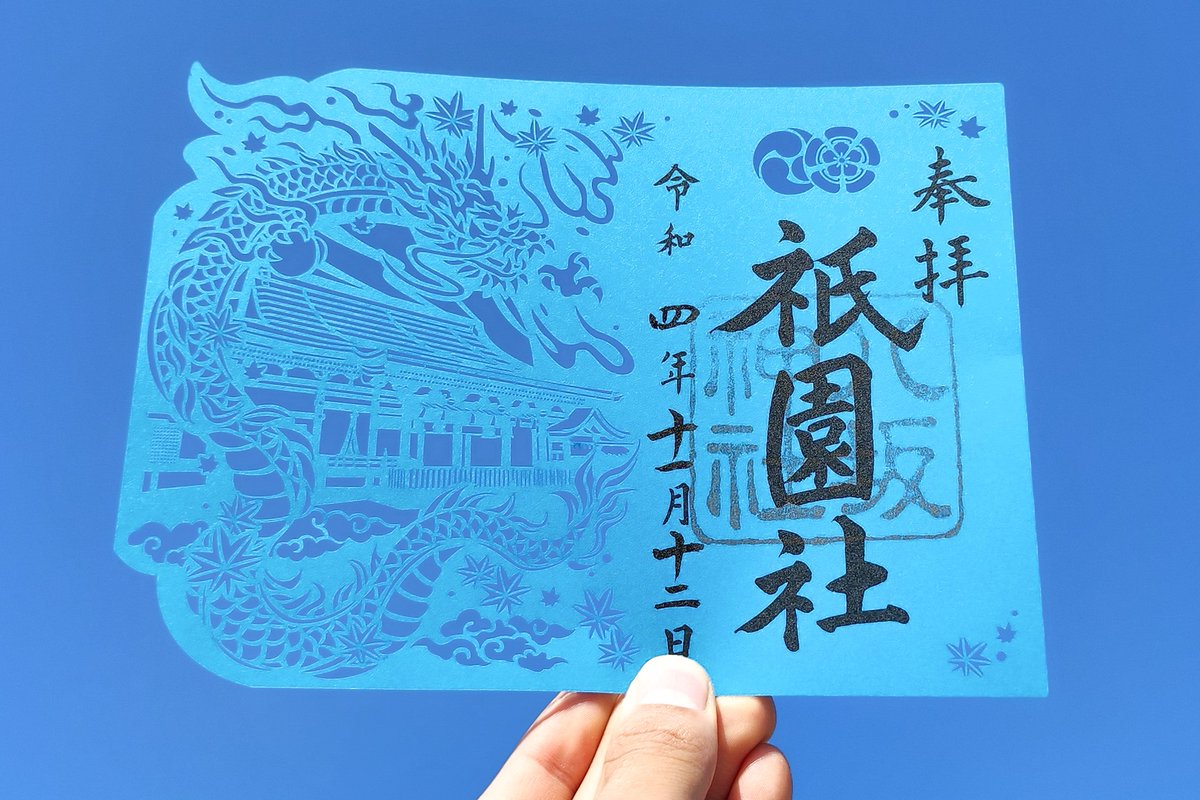 奉拝
祇園社
八坂神社
令和四年十一月十二日